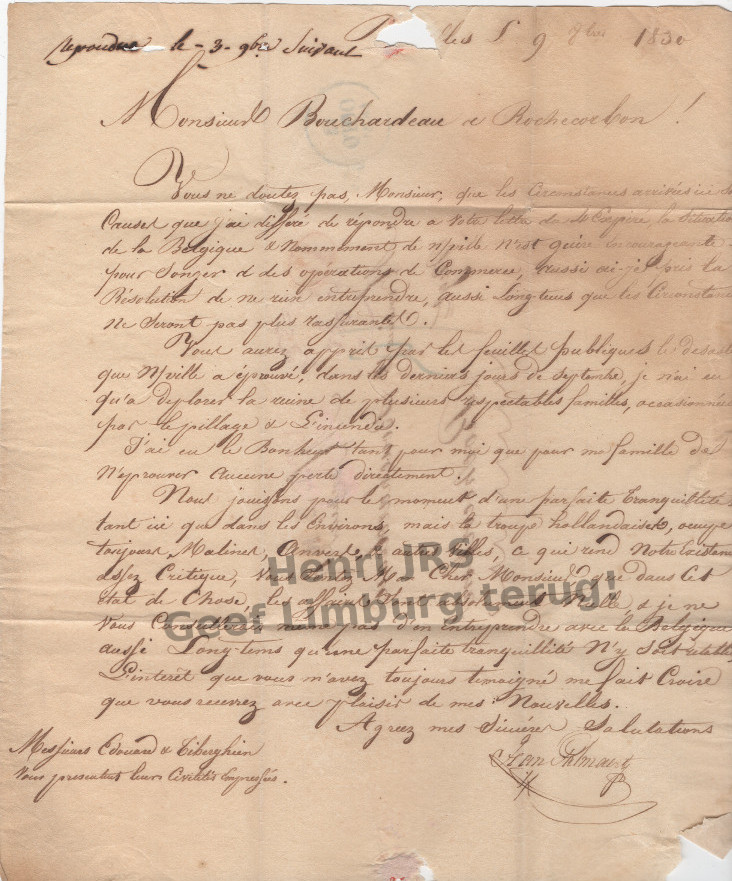 repondue le 3 9bre Suivant
lles S 9 1830
Monsieur Bouchardeau a Rochecorbon !
Vous ne doutez pas, Monsieur, que les Circonstances arrivées ici
Causes que j'ai différé de répondre a votre lettre de la Situation
de la Belgique & Nommément de n/ville n'est guère encourageante
pour Songer a des opérations de Commerce, aussi ai-je pris la
Résolution de ne rien entreprendre, aussi long-tems que les Circonstan
ne Seront pas plus rassurantes.
Vous aurez appris par les feuilles publiques le desast
que N/ville a éprouvé, dans les derniers jours de septembre, je n'ai eu
qu'a deplorer la ruine de plusieurs respectables familles, occasionnée
par le pillage & L'incendie.
J'ai eu le Bonheur tant pour moi que pour ma famille de
N'eprouver aucune perte directement.
Nous jouissons pour le moment d'une parfaite tranquillité
tant ici que dans les Environs, mais la troupe hollandaise, occupe
toujours Malines, Anvers, & autres villes, ce qui rend Notre
assez Critique, Vous Mon Cher Monsieur que dans cet
état de Chose, les affaires sont Nulles, & je ne
vous pas d'en entreprendre avec la Belgique
aussi Long-tems qu'une parfaite tranquillité N'y Soit retablie
L'interêt que vous m'avez toujours temoigné me fait Croire
que vous recevrez avec plaisir de mes Nouvelles.
Agréez mes Sincères Salutations
Messieurs Edouard & Tiberghien
Vous presentent leurs Civilités Empressées.
Jean
Henri JRS
Geef Limburg terug!